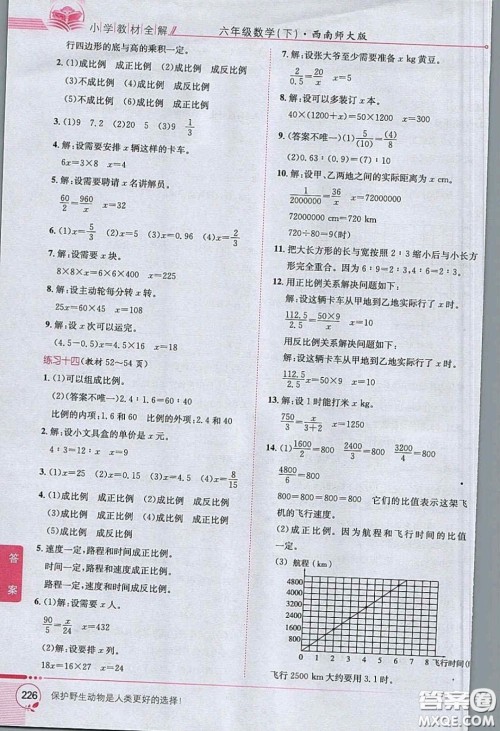 小学教材全解 六年级数学(下)·西南师大版
行四边形的底与高的乘积一定。
2. (1)成比例 成正比例 (2)成比例 成正比例
(3)不成比例 (4)成比例 成反比例
(5)不成比例 (6)成比例 成反比例
3. (1)9 7.2 (2)20 5 (3)9 1/3
4. 解:设需要安排 x 辆这样的卡车。
6x=3×8 x=4
5. 解:设需要聘请 x 名讲解员。
60/2=960/x x=32
6. (1)x=5/3 (2)x=5 (3)x=0.96 (4)x=5/3
7. 解:设需要 x 块。
8×8×x=6×6×400 x=225
8. 解:设主动轮每分转 x 转。
25x=60×80 x=192
9. 解:设 x 次可以运完。
(4.5-0.5)x=4.5×16 x=18
练习十四(教材 52~54 页)
1. (1)可以组成比例。
(2)(答案不唯一)2.4∶1.6=60∶40
比例的内项:1.6 和 60 比例的外项:2.4 和 40
2. 解:设小文具盒的单价是 x 元。
4∶3=12∶x x=9
3. (1)x=25 (2)x=0.15 (3)x=4.5 (4)x=8/15
4. (1)成比例 成正比例 (2)成比例 成正比例
(3)成比例 成反比例 (4)成比例 成反比例
(5)成比例 成反比例
5. 速度一定,路程和时间成正比例。
时间一定,路程和速度成正比例。
路程一定,速度和时间成反比例。
6. (1)解:设需要 x 人。
300/50=x/72 x=432
(2)解:设要排 x 列。
18x=16×27 x=24
7. 解:设张大爷至少需要准备 x kg 黄豆。
8. 解:设可以多装订 x 本。
40×(1200+x)=50×1200 x=300
9. (答案不唯一) (5)/(10)=(4)/(8)
10. 解:设甲、乙两地之间的实际距离为 x cm。
1/2000000=36/x x=72000000
72000000 cm=720 km
720÷80=9(时)
11. 把大长方形的长与宽按照 2∶3 缩小后与小长方形完全重合。因为 6∶9=2∶3,4∶6=2∶3。
12. 用正比例关系解决问题如下:
解:设这辆卡车从甲地到乙地实际行了 x 时。
112.5/2.5=50/x
用反比例关系解决问题如下:
解:设这辆卡车从甲地到乙地实际行了 x 时。
13. 解:设 1 时能打米 x kg。
14. (1)1600/2=800 2400/3=800 3200/4=800
4800/6=800
800=800=800=800 它们的比值表示这架飞机的飞行速度。
(2)成正比例。因为航程和飞行时间的比值一定。
(3) 航程(km)
4800
4000
3200
2400
1600
800
0 1 2 3 4 5 6 7 8
飞行 2500 km 大约要用 3.1 时。
答案
226 保护野生动物是人类更好的选择!
答案圈
MXQE.COM